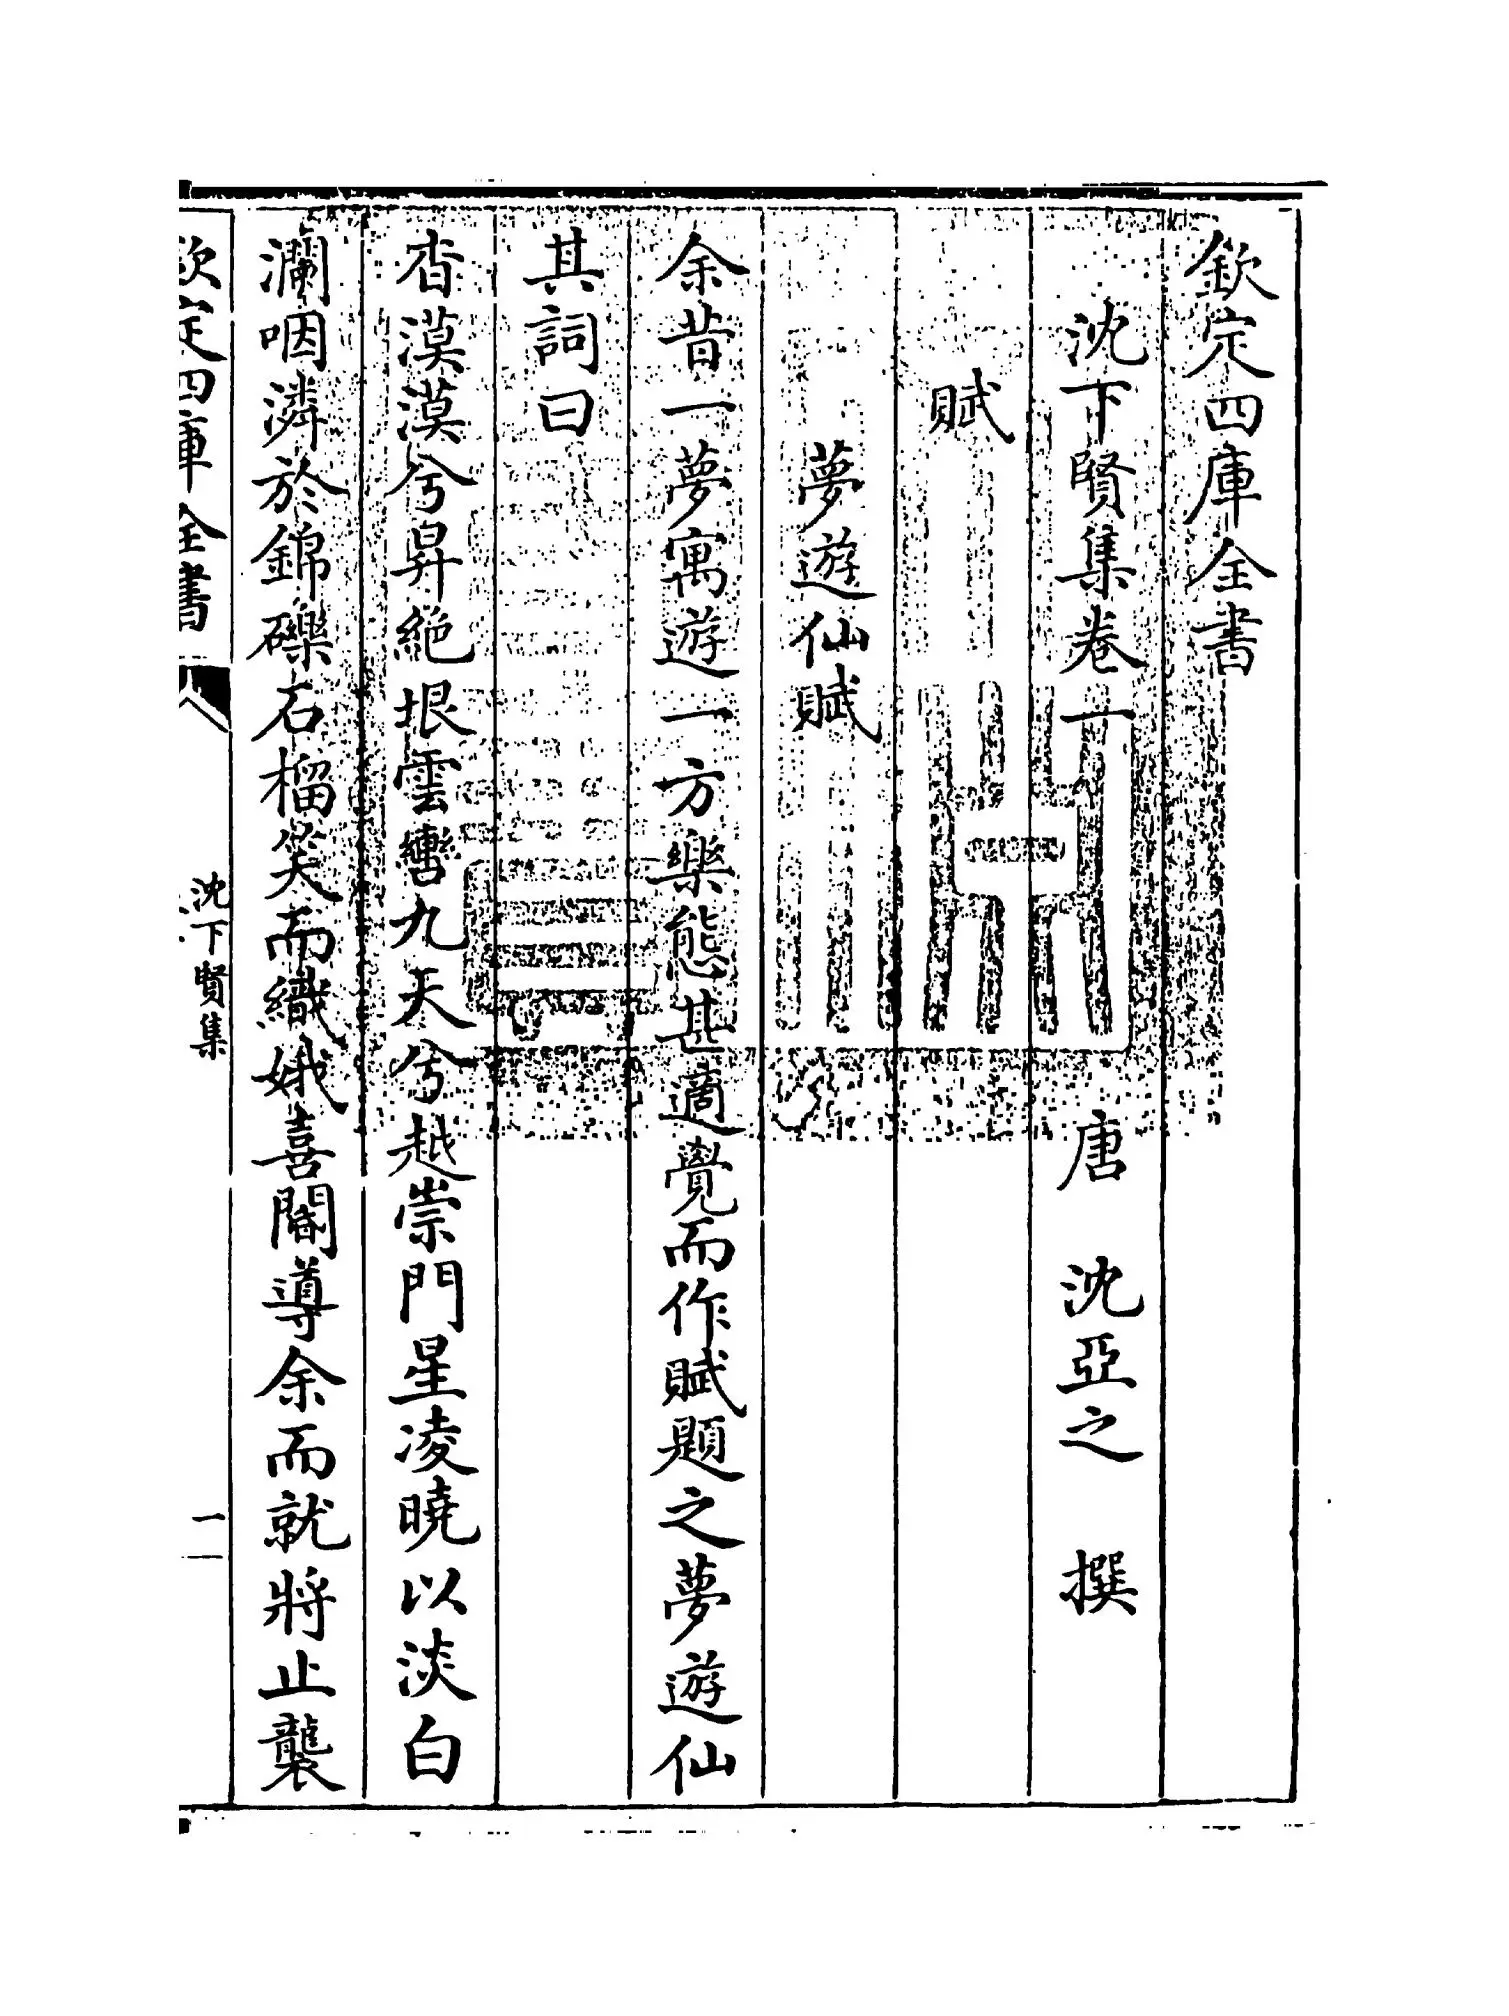 欽定四庫全書
沈下賢集卷一　唐　沈亞之　撰
賦
夢遊仙賦
余昔一夢寓遊一方樂態甚適覺而作賦題之夢遊仙
其詞曰
杳漠漠兮昇絶垠雲轡九天兮越崇門星凌曉以淡白
瀾咽潾於錦礫石榴笑而織娥喜閽導余而就將止襲
欽定四庫全書
沈下賢集
一